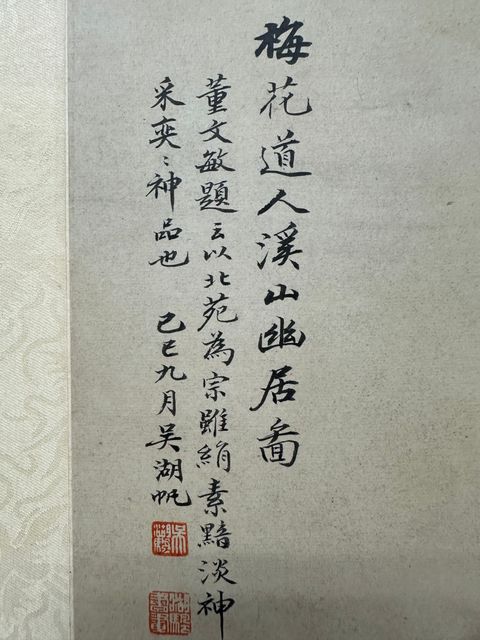 梅花道人溪山幽居啚
董文敏題云以北苑為宗雖絹素黯淡神
采奕〻神品也　己巳九月吴湖帆